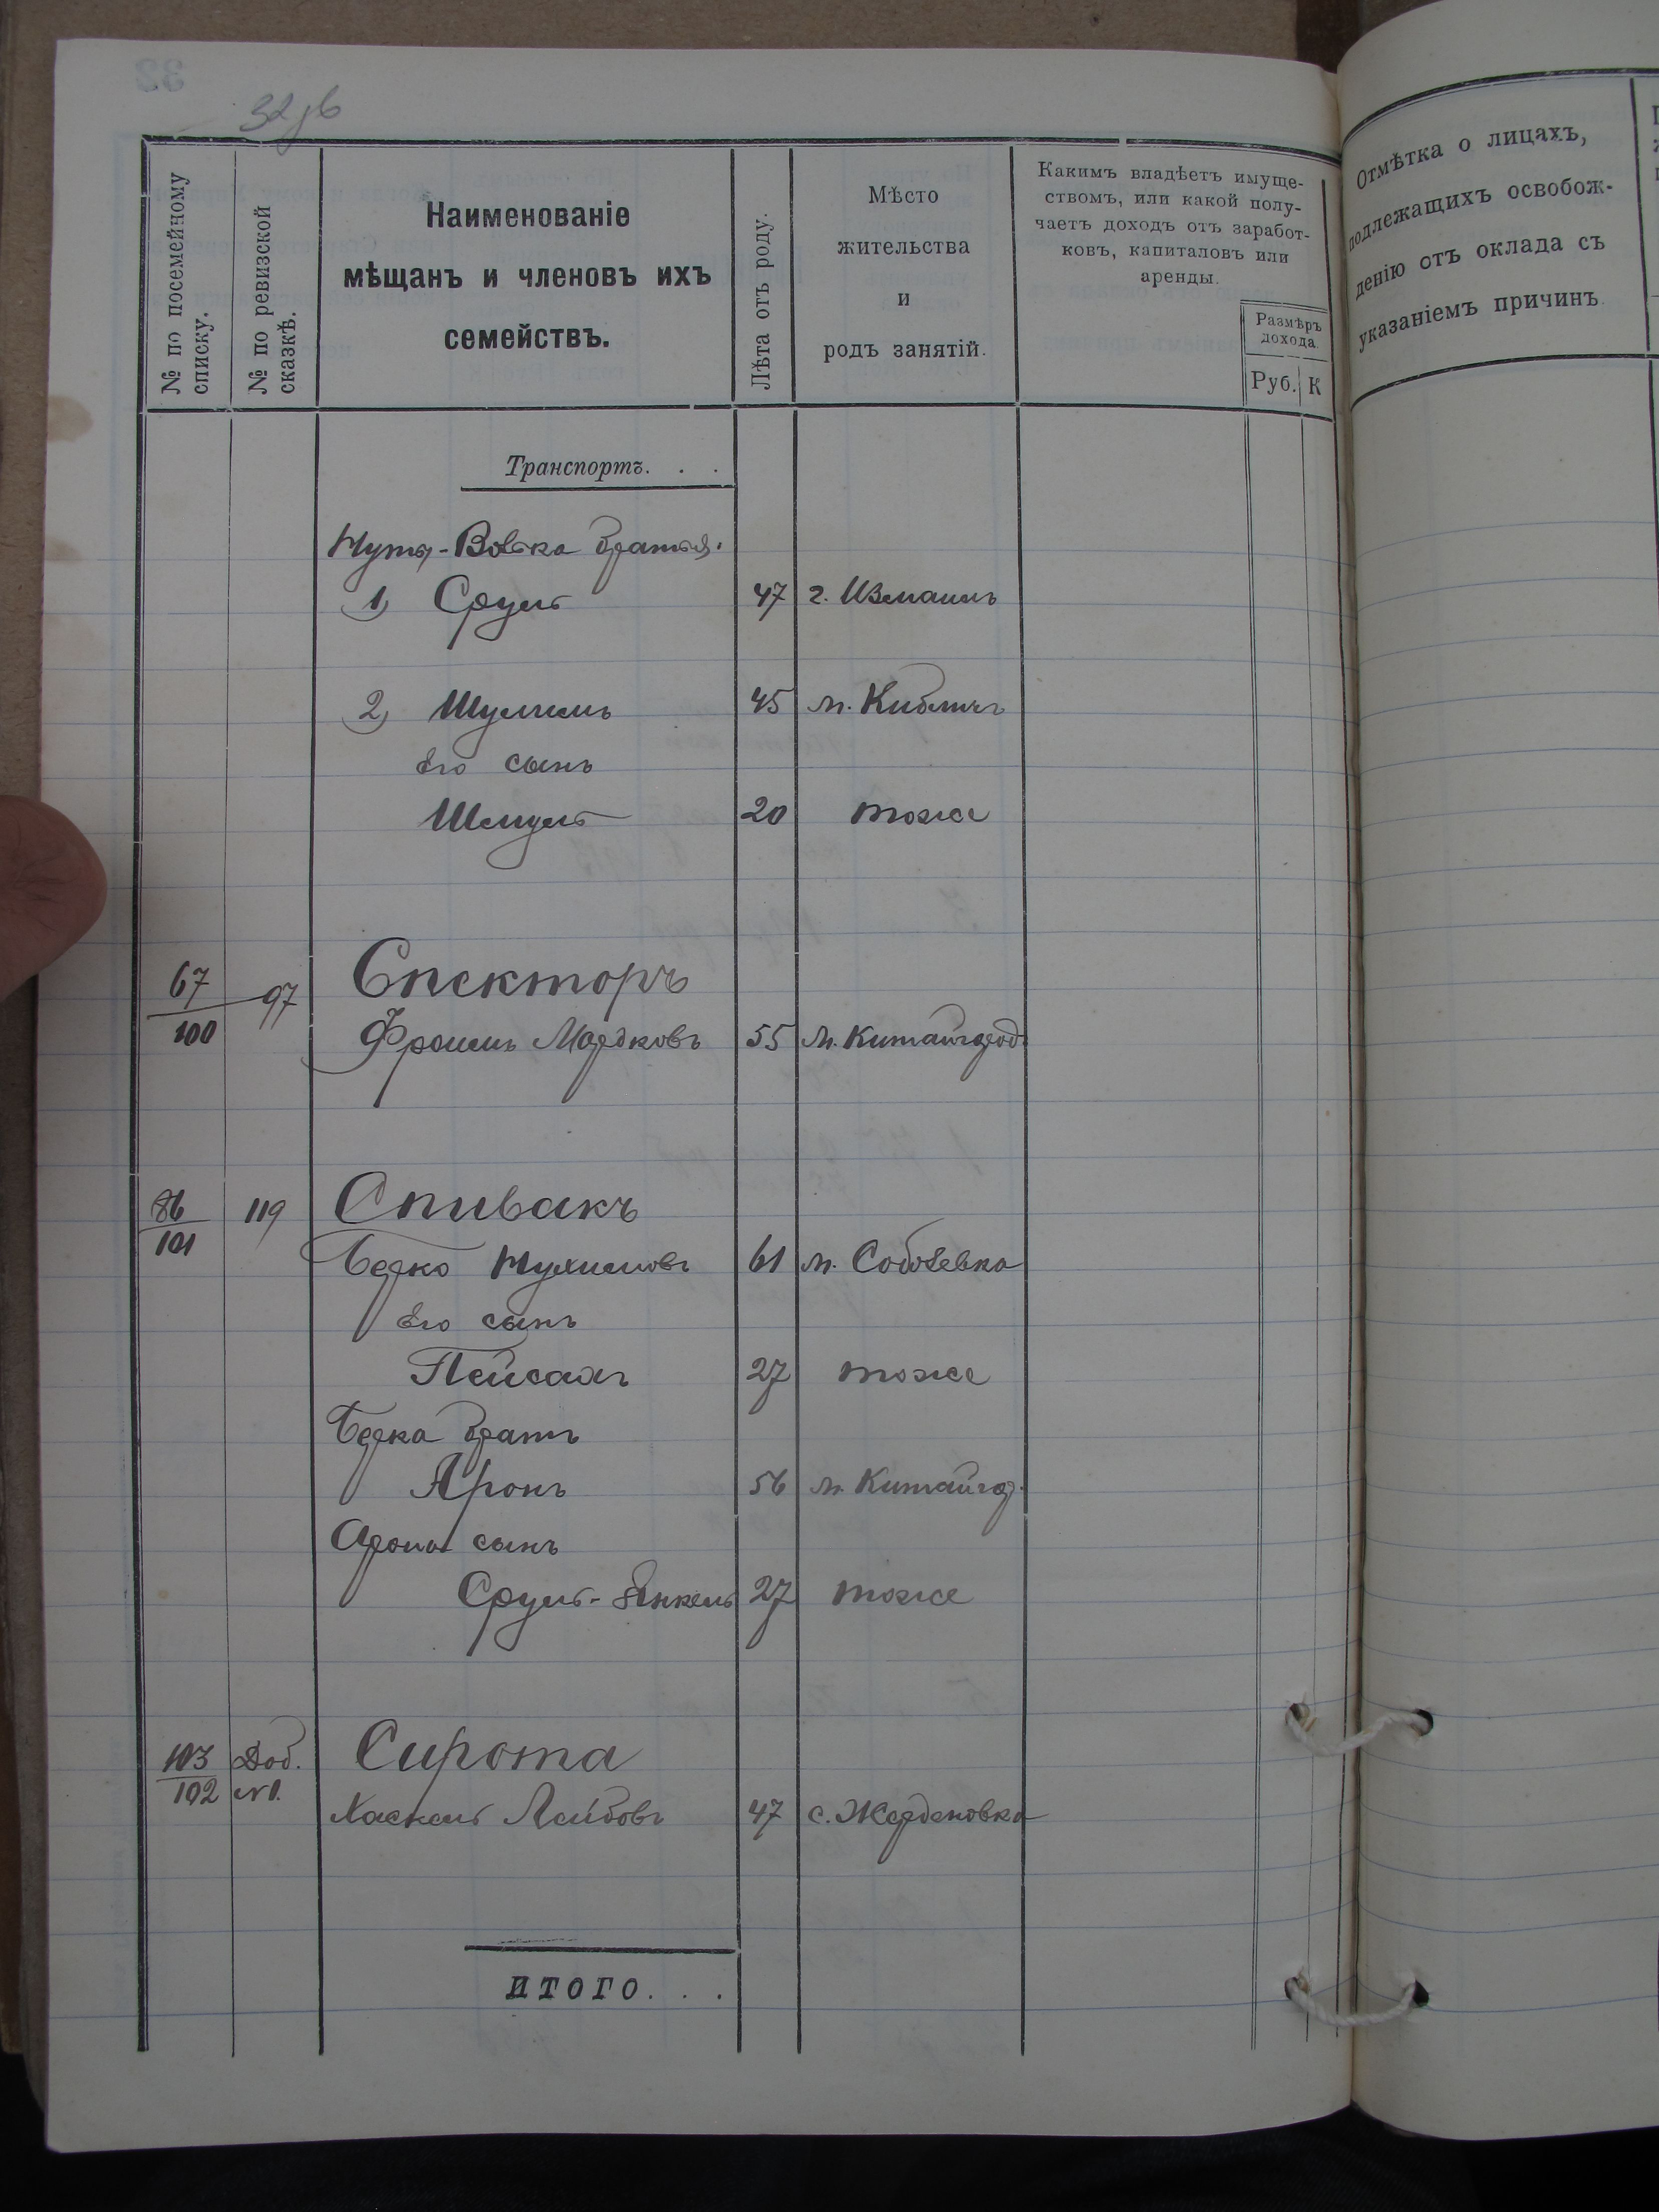 32
32 об
№ по посемейному списку.
№ по ревизской сказкѣ.
Наименованіе
мѣщанъ и членовъ ихъ
семействъ.
Лѣта отъ роду.
Мѣсто
жительства
и
родъ занятій.
Какимъ владѣетъ имуще-
ствомъ, или какой полу-
чаетъ доходъ отъ заработ-
ковъ, капиталовъ или
аренды.
Размѣръ
дохода.
Руб. К
Отмѣтка о лицахъ,
подлежащихъ освобож-
денію отъ оклада съ
указаніемъ причинъ.
Транспортъ. . .
Нуты-Вовка братья.
1) Сруль 47 г. Измаилъ
2) Шулимъ 45 м. Кибличъ
его сынъ
Шмуль 20 тоже
67/100 97 Спекторъ
Фроимъ Мордковъ 55 м. Китайгород
86/101 119 Спивакъ
Берко Нухимовъ 61 м. Соболевка
его сынъ
Пейсахъ 27 тоже
Берка братъ
Аронъ 56 м. Китайгор.
Арона сынъ
Сруль-Янкель 27 тоже
103/102 Доб. №1. Сирота
Хаскель Лейбовъ 47 с. Жерденовка
ИТОГО. . .